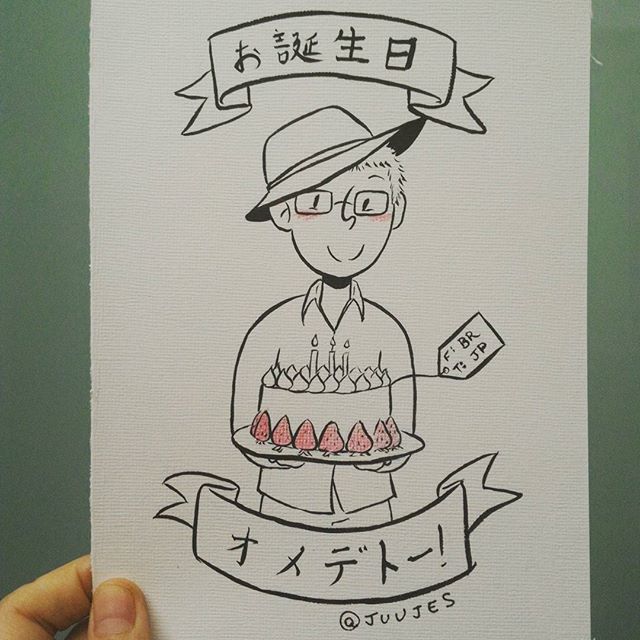 お誕生日
F: BR
To: JP
オメデトー!
@JUUJES